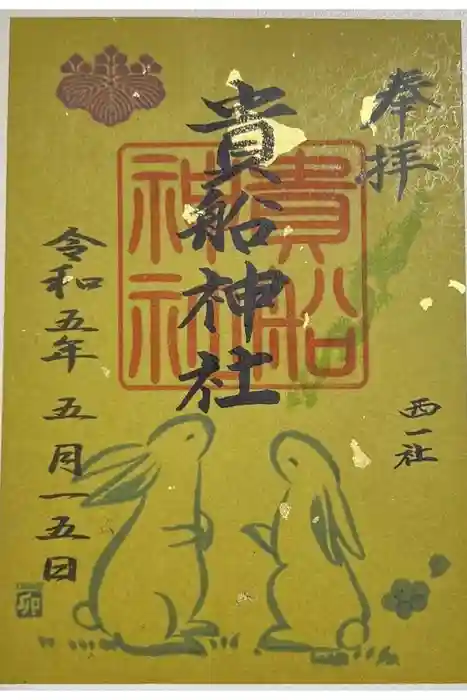 奉拝
貴船
神社
貴船神社
西一社
令和五年 五月一五日
卯